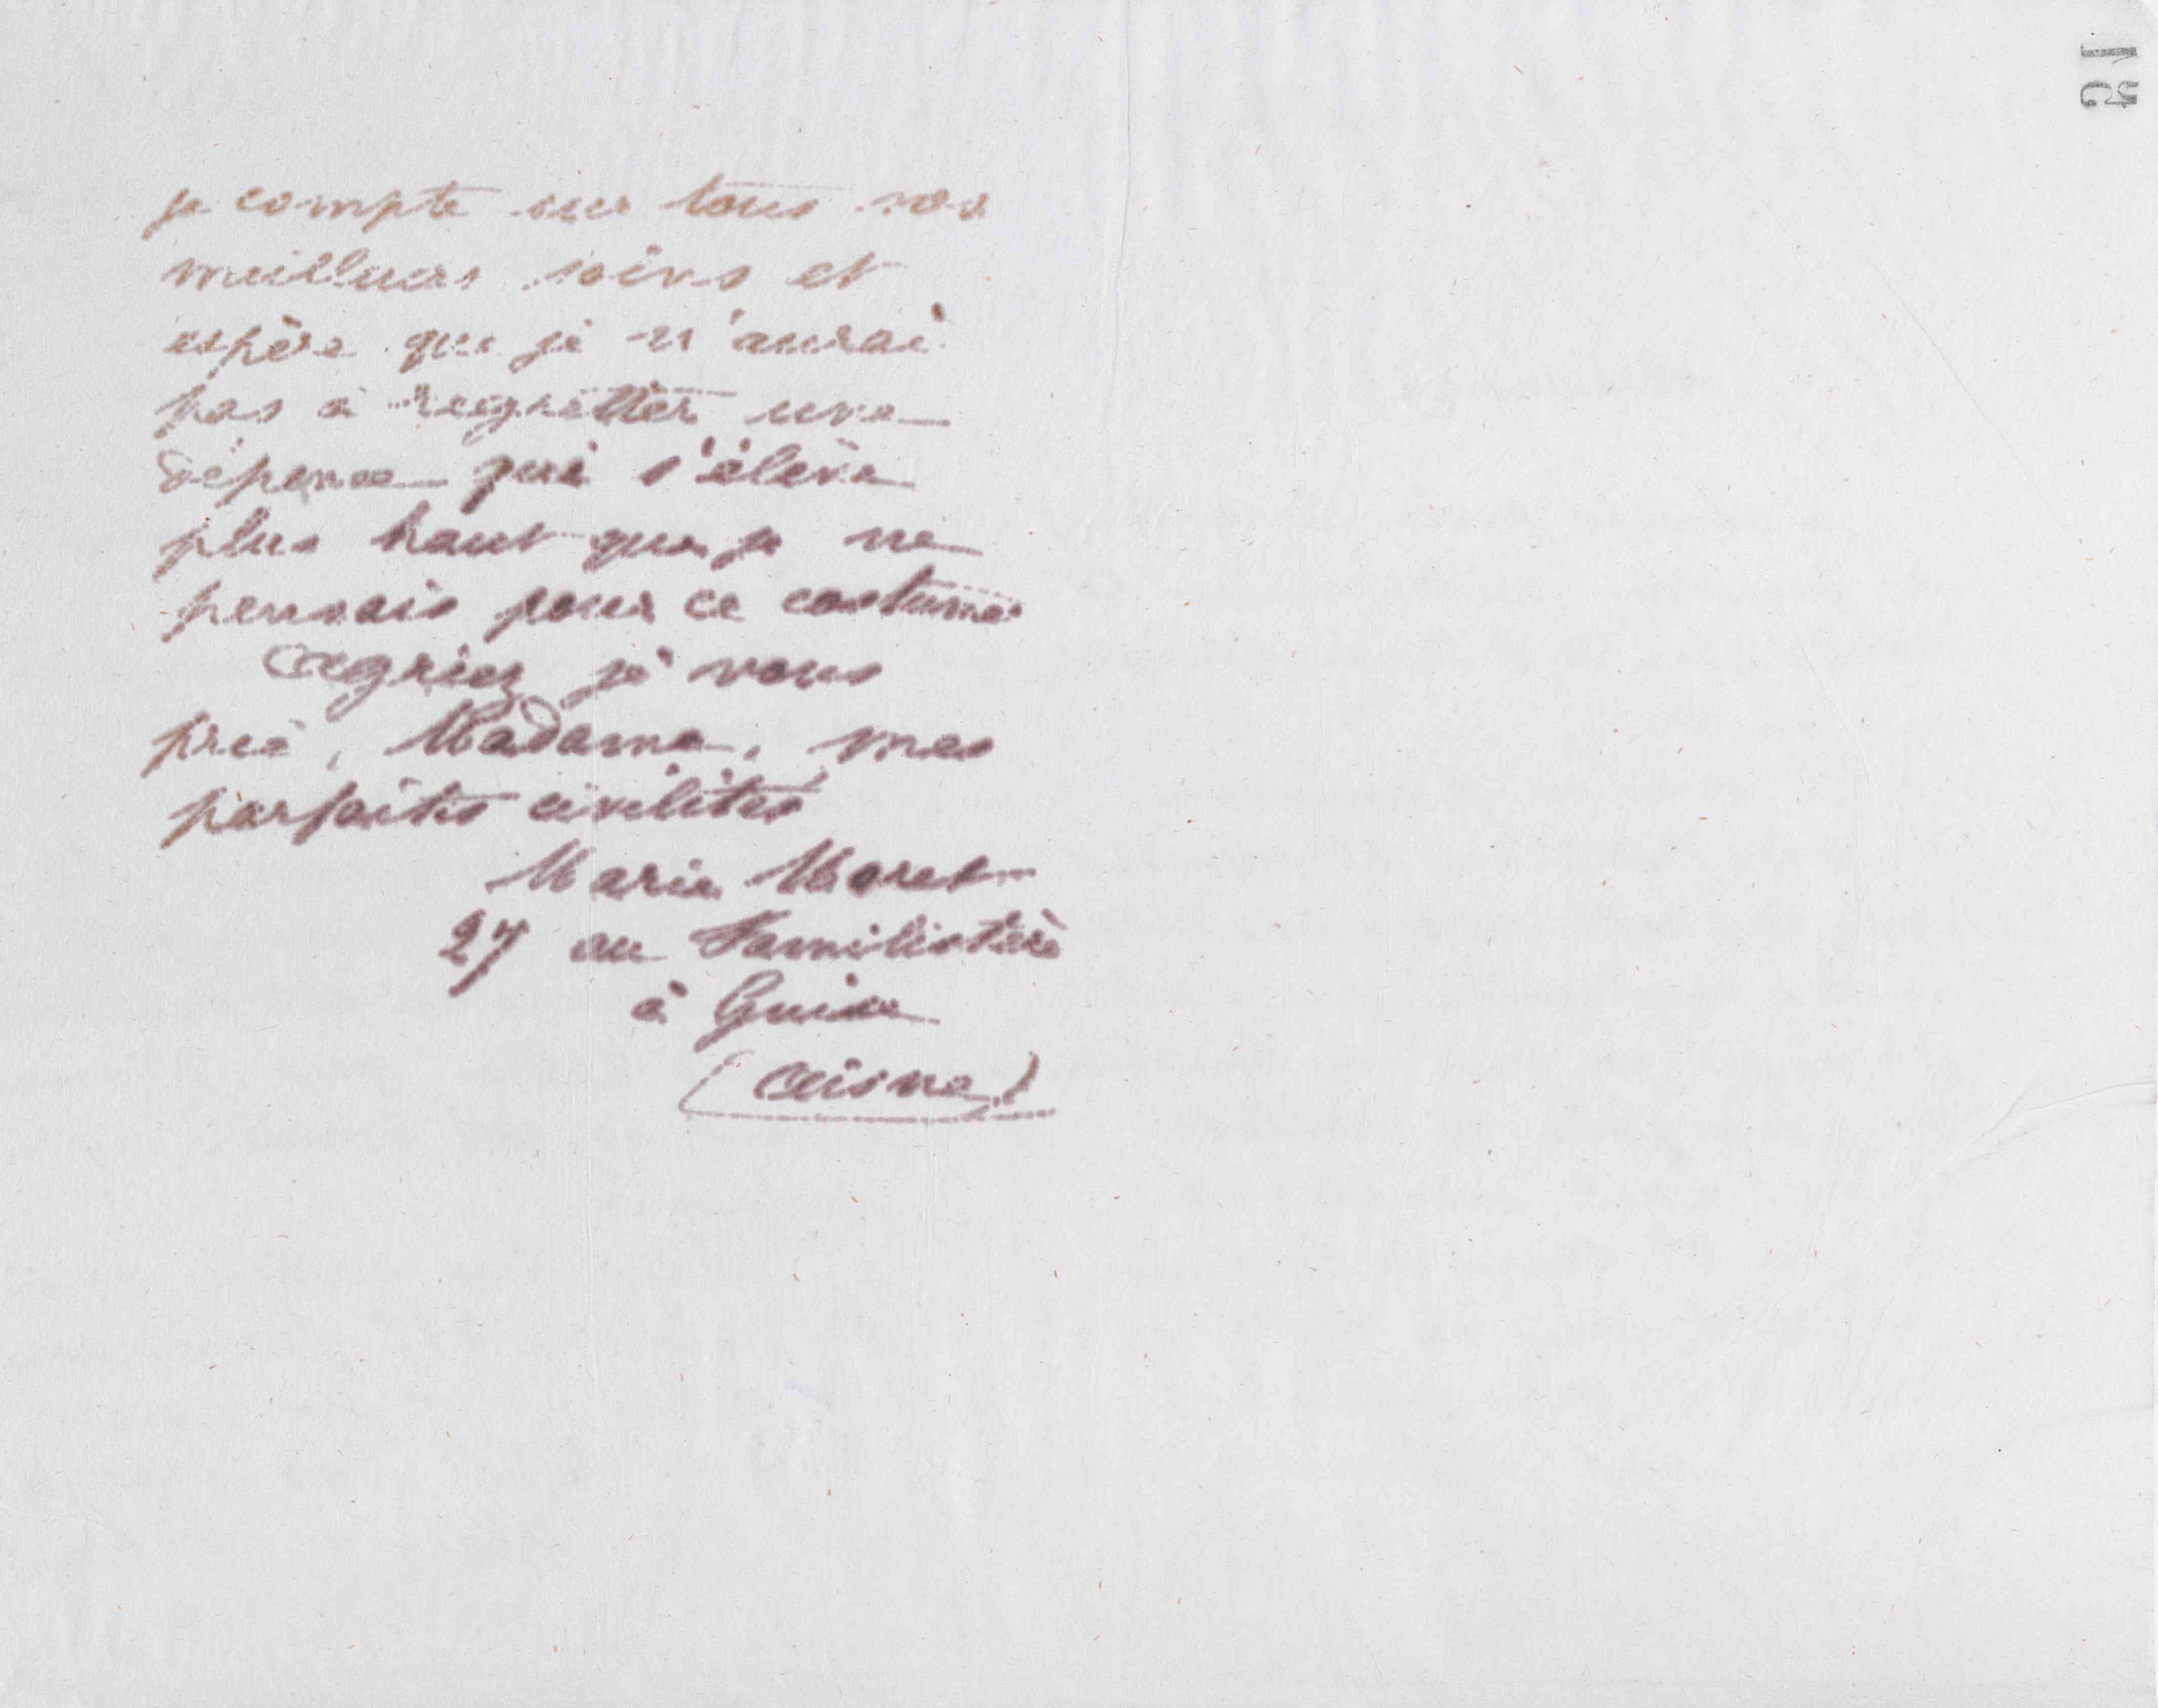 je compte sur tous vos
meilleurs soins et
espère que je n'aurai
pas à regretter une
dépense qui s'élève
plus haut que je ne
pensais pour ce costume.
Agréez je vous
prie, Madame, mes
parfaites civilités
Marie Moret
27 au Familistère
à Guise
(Aisne)